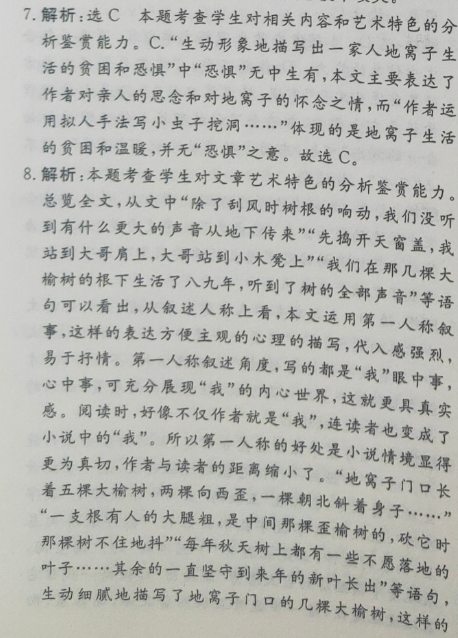 7.解析:选C 本题考查学生对相关内容和艺术特色的分
析鉴赏能力。C.“生动形象地描写出一家人地窝子生
活的贫困和恐惧”中“恐惧”无中生有,本文主要表达了
作者对亲人的思念和对地窝子的怀念之情,而“作者运
用拟人手法写小虫子挖洞……”体现的是地窝子生活
的贫困和温暖,并无“恐惧”之意。故选C。
8.解析:本题考查学生对文章艺术特色的分析鉴赏能力。
总览全文,从文中“除了刮风时树根的响动,我们没听
到有什么更大的声音从地下传来”“先捣开天窗盖,我
站到大哥肩上,大哥站到小木凳上”“我们在那几棵大
榆树的根下生活了八九年,听到了树的全部声音”等语
句可以看出,从叙述人称上看,本文运用第一人称叙
事,这样的表达方便主观的心理的描写,代入感强烈,
易于抒情。第一人称叙述角度,写的都是“我”眼中事,
心中事,可充分展现“我”的内心世界,这就更具真实
感。阅读时,好像不仅作者就是“我”,连读者也变成了
小说中的“我”。所以第一人称的好处是小说情境显得
更为真切,作者与读者的距离缩小了。“地窝子门口长
着五棵大榆树,两棵向西歪,一棵朝北斜着身子……”
“一支根有人的大腿粗,是中间那棵歪榆树的,砍它时
那棵树不住地抖”“每年秋天树上都有一些不愿落地的
叶子……其余的一直坚守到来年的新叶长出”等语句,
生动细腻地描写了地窝子门口的几棵大榆树,这样的